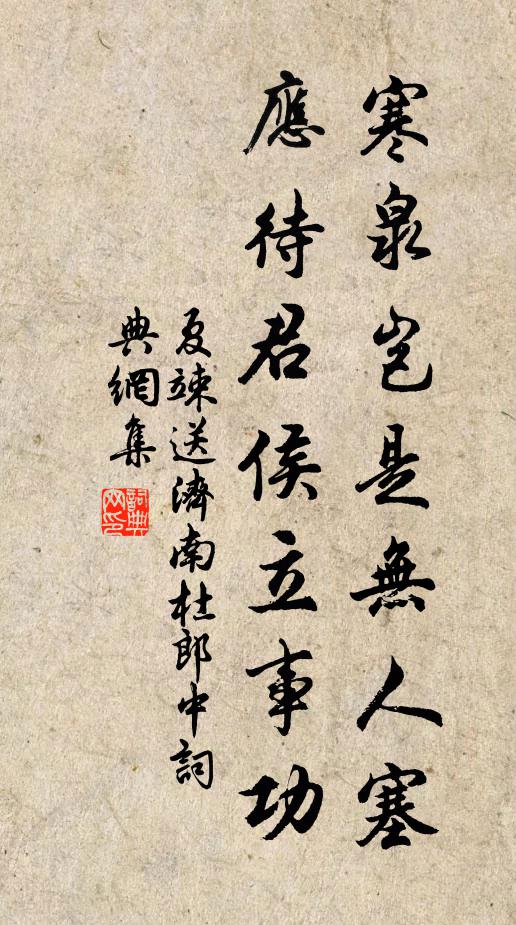 寒泉岂是無人塞
應待君侯立事功
夏竦送濟南杜郎中詞
典網集
詞典
网印